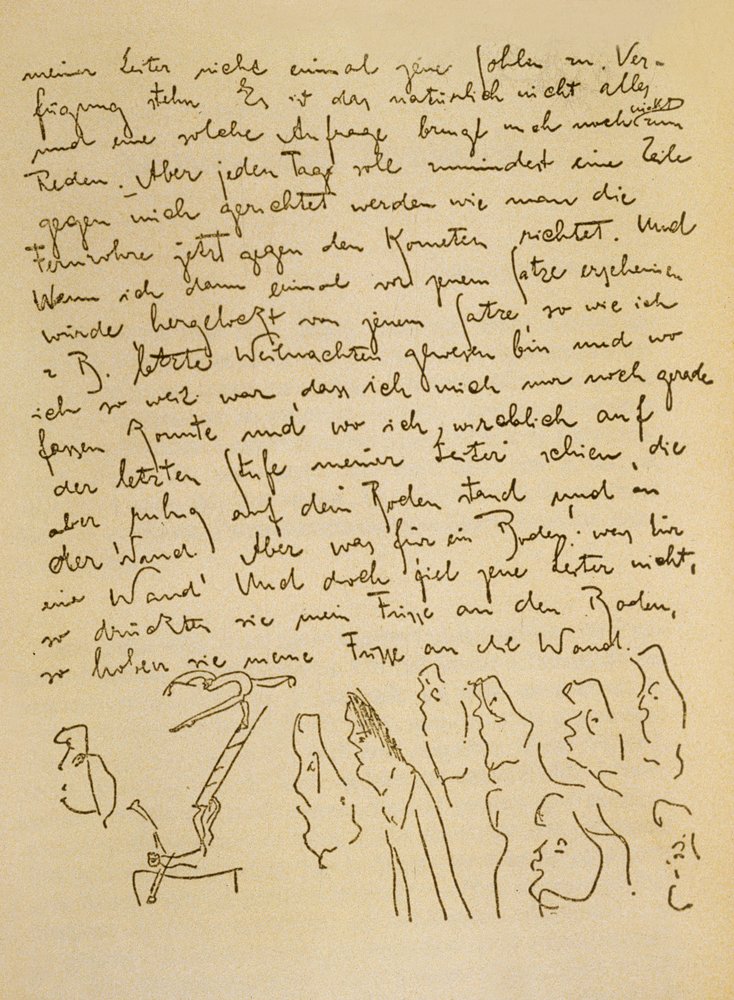 meiner Leiter nicht einmal jene Sohlen zu. Ver-
fügung stehn. Es ist das natürlich nicht alles
und eine solche Anfrage bringt mich noch nicht zum
Reden. Aber jeden Tag soll zumindest eine Zeile
gegen mich gerichtet werden wie man die
Fernrohre jetzt gegen den Kometen richtet. Und
Wenn ich dann einmal vor jenem Satze erscheinen
würde hergelockt von jenem Satze, so wie ich
z B. letzte Weihnachten gewesen bin und wo
ich so weit war, dass ich mich nur noch gerade
fassen konnte und wo ich wirklich auf
der letzten Stufe meiner Leiter schien, die
aber ruhig auf dem Boden stand und an
der Wand. Aber was für ein Boden! was für
eine Wand! Und doch fiel jene Leiter nicht,
so drückten sie meine Füsse an den Boden,
so hoben sie meine Füsse an die Wand.